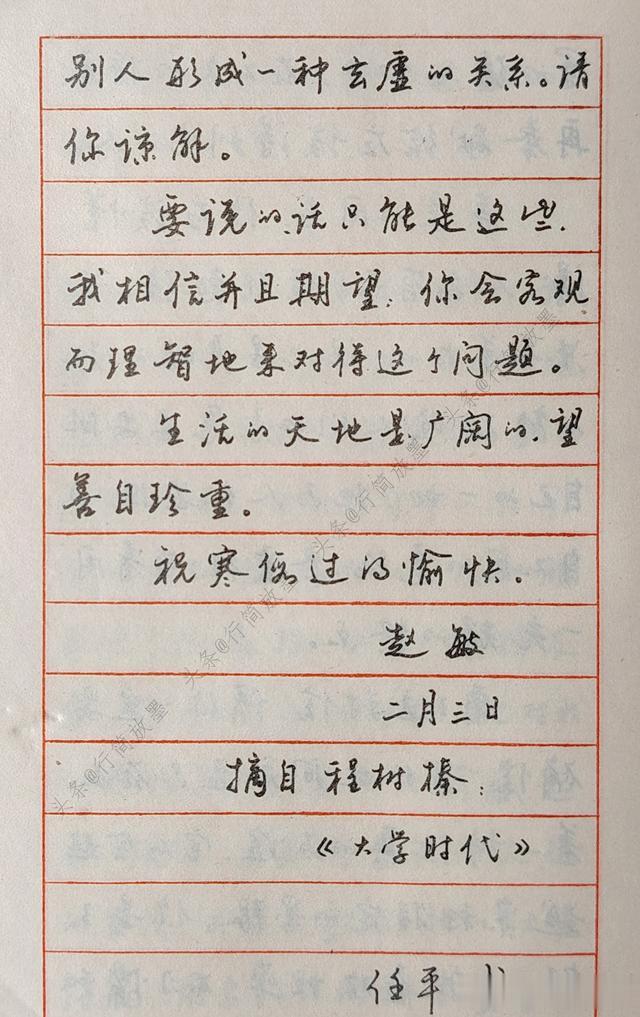 别人形成一种玄虚的关系。请
你谅解。
要说的话只能是这些.
我相信并且期望: 你会客观
而理智地来对待这个问题。
生活的天地是广阔的.望
善自珍重。
祝寒假过得愉快。
赵敏
二月三日
摘自程树榛:
《大学时代》
任平
头条@行简放墨
头条@行简放墨
头条@行简放墨
头条@行简放墨